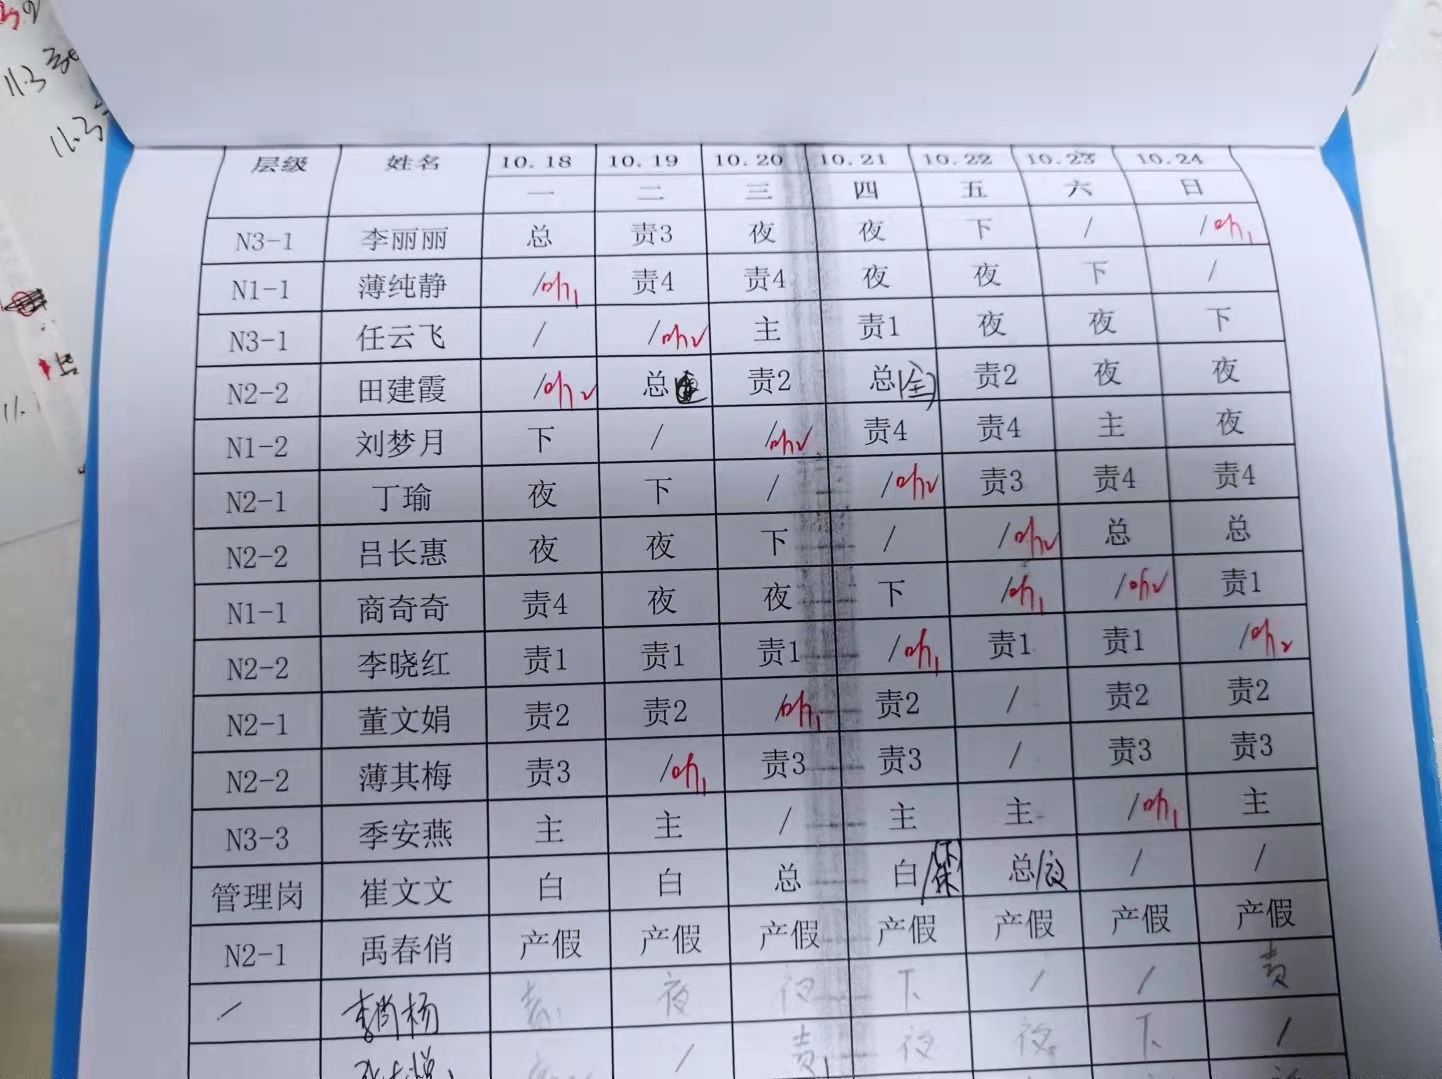 11.3
11.3
11.
层级 姓名 10.18 10.19 10.20 10.21 10.22 10.23 10.24
一 二 三 四 五 六 日
N3-1 李丽丽 总 责3 夜 夜 下 / /
N1-1 薄纯静 / 责4 责4 夜 夜 下 /
N3-1 任云飞 / / 主 责1 夜 夜 下
N2-2 田建霞 / 总 责2 总 责2 夜 夜
N1-2 刘梦月 下 / / 责4 责4 主 夜
N2-1 丁瑜 夜 下 / / 责3 责4 责4
N2-2 吕长惠 夜 夜 下 / / 总 总
N1-1 商奇奇 责4 夜 夜 下 / / 责1
N2-2 李晓红 责1 责1 责1 / 责1 责1 /
N2-1 董文娟 责2 责2 / 责2 / 责2 责2
N2-2 薄其梅 责3 / 责3 责3 / 责3 责3
N3-3 季安燕 主 主 / 主 主 / 主
管理岗 崔文文 白 白 总 白/ 总/夜 / /
N2-1 禹春俏 产假 产假 产假 产假 产假 产假 产假
/ 责 夜 夜 下 / / 责
/ 责1 夜 夜 下 /